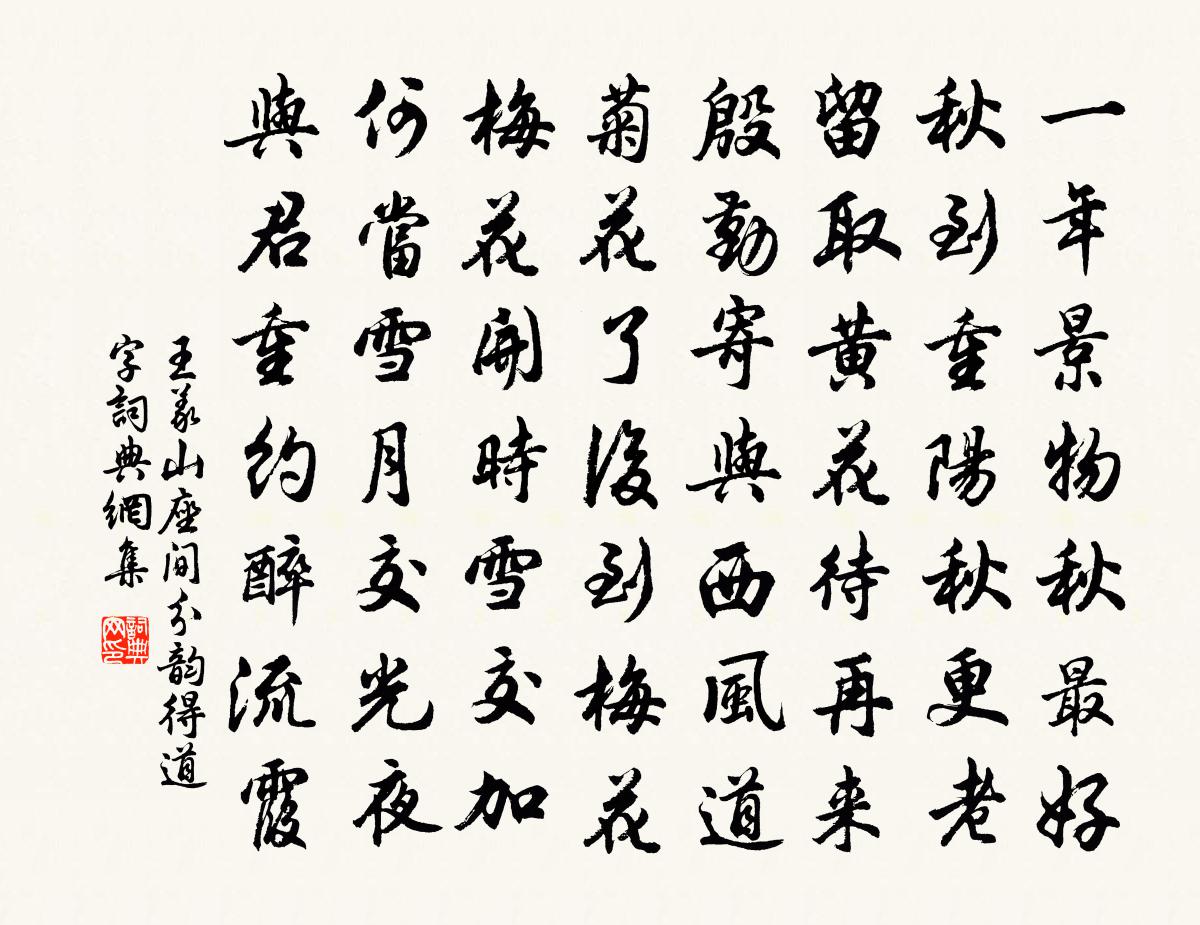 一年景物秋最好
秋到重陽秋更老
留取黄花待再来
殷勤寄與西風道
菊花了後到梅花
梅花開時雪交加
何當雪月交光夜
與君重約醉流霞
王義山座间分韵得道
字詞典網集
詞典网印